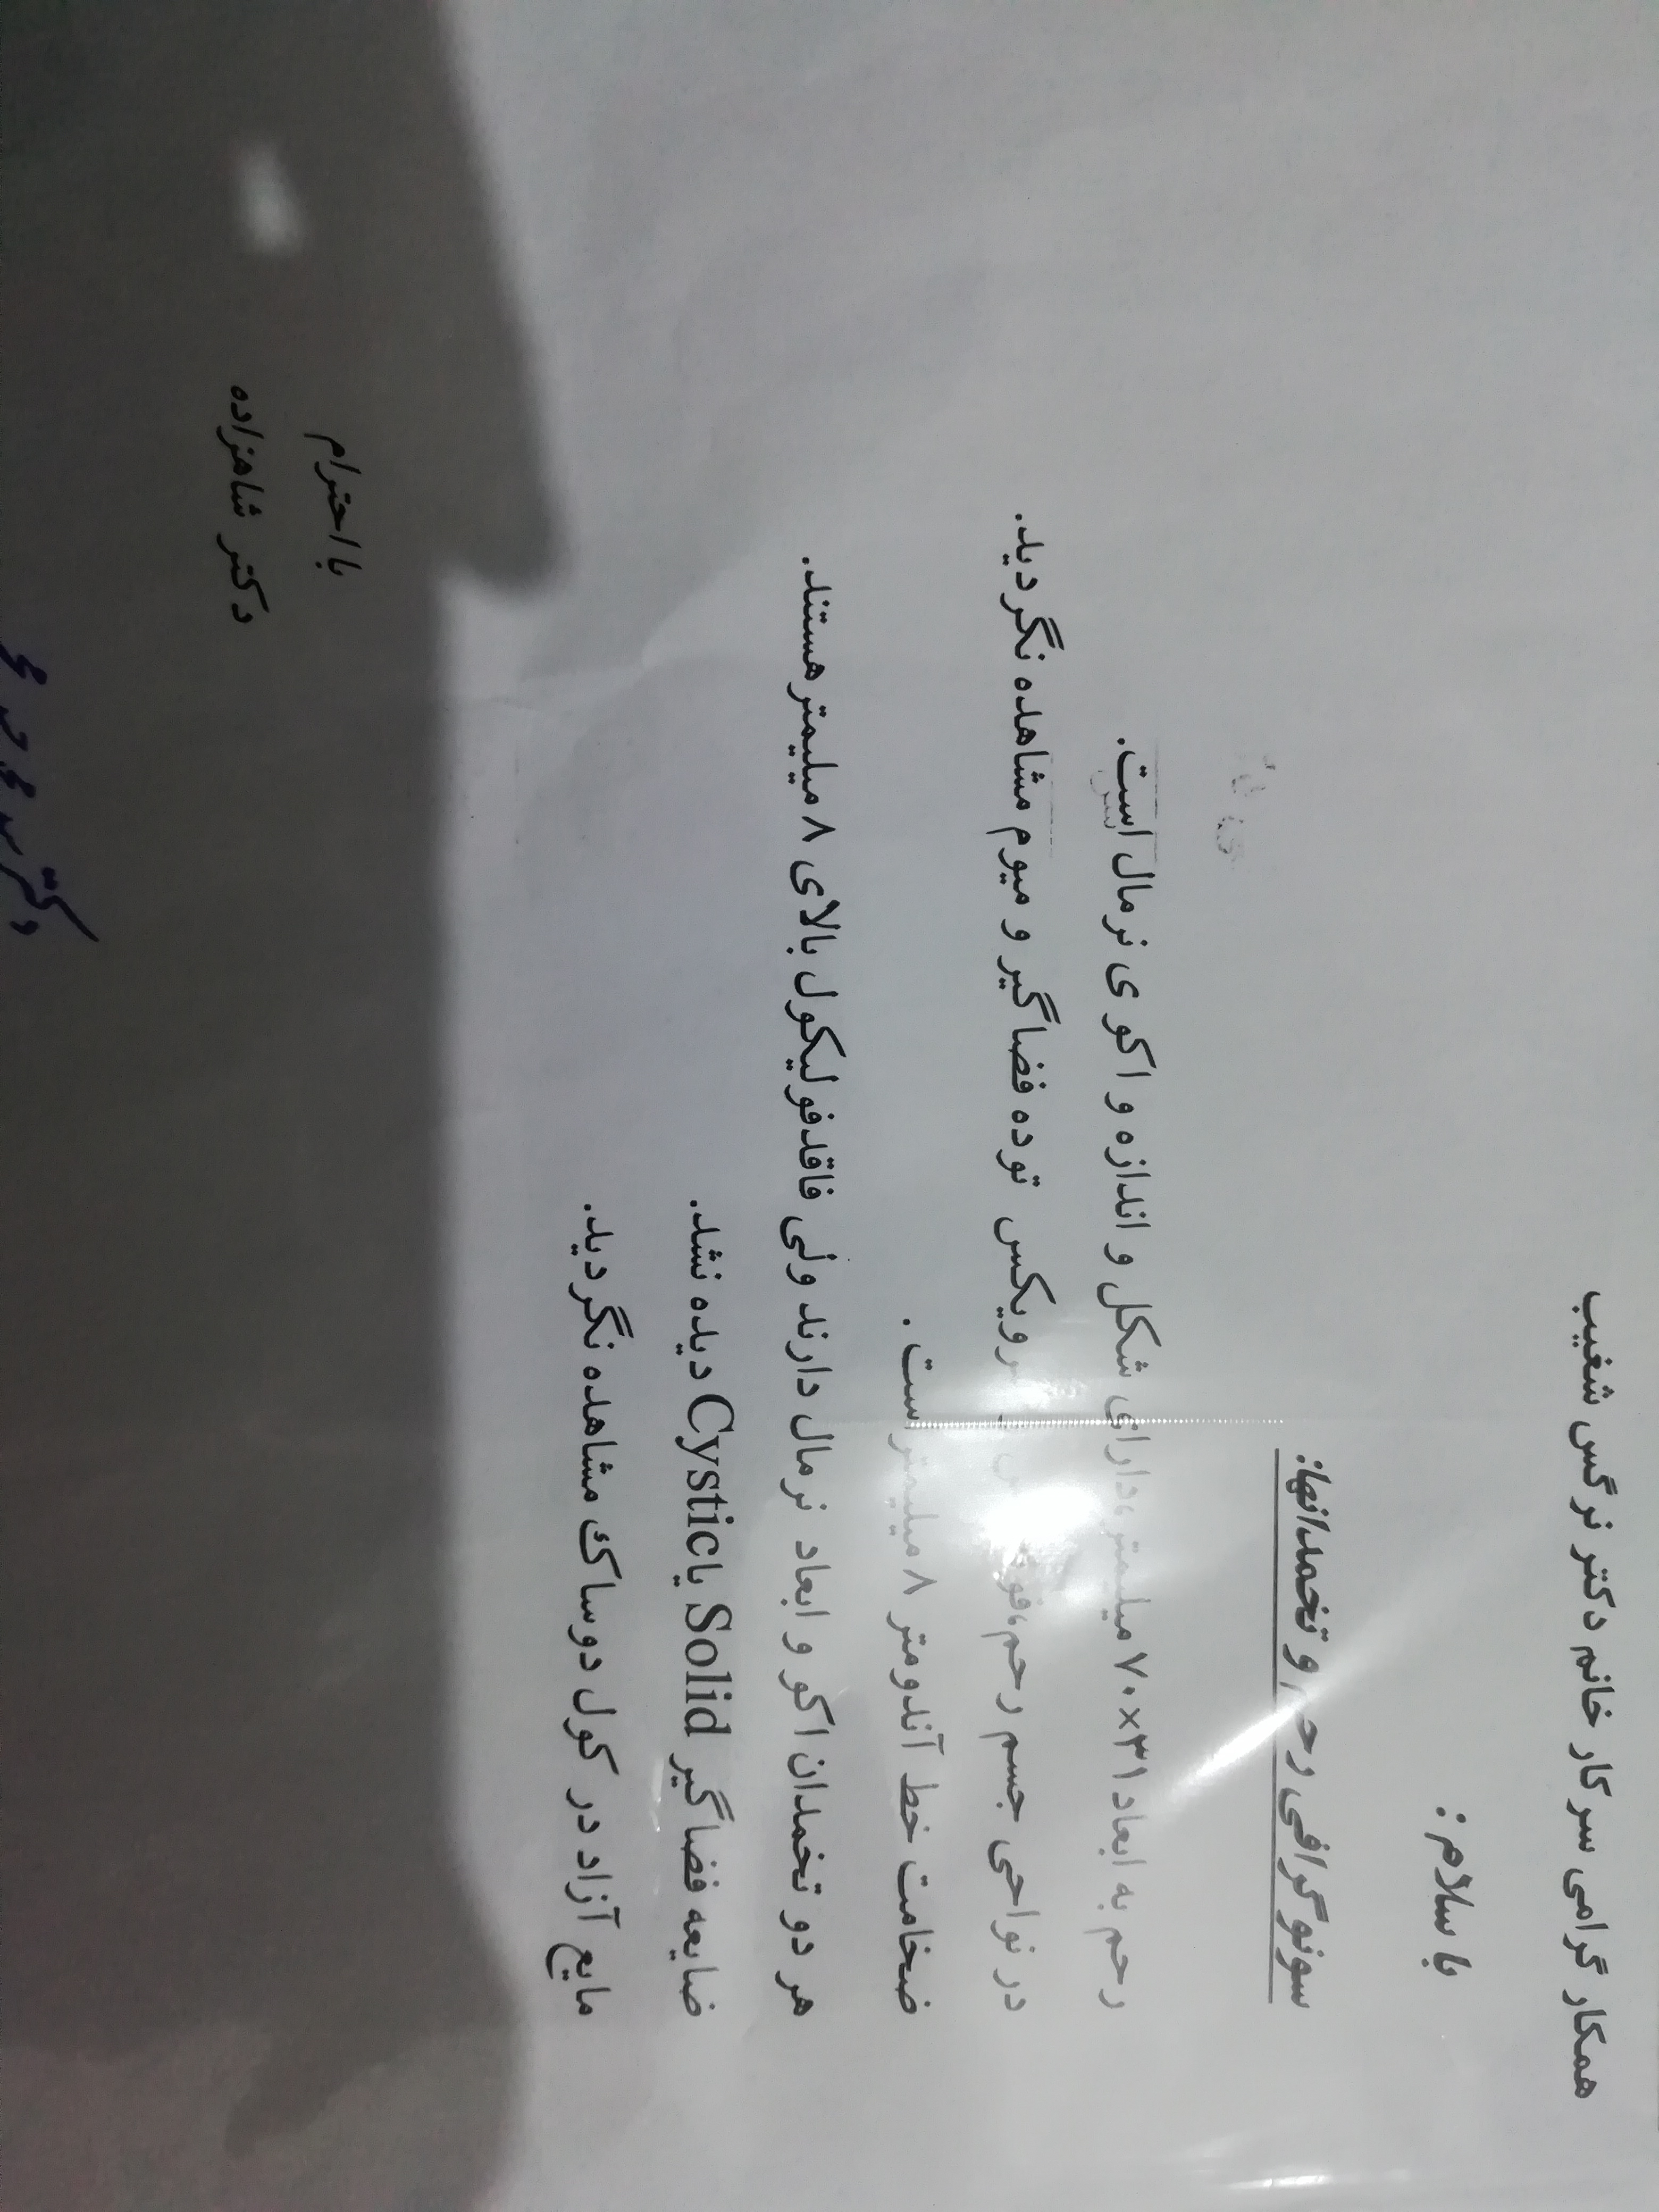 همکار گرامی سرکار خانم دکتر نرگس شغیب
با سلام :
سونوگرافی رحم و تخمدانها:
رحم به ابعاد ۷۰×۳۱ میلیمتر،دارای شکل و اندازه و اکوی نرمال است.
در نواحی جسم رحم، توده فضاگیر و میوم مشاهده نگردید.
ضخامت خط آندومتر ۸ میلیمتر است .
هر دو تخمدان اکو و ابعاد نرمال دارند ولی فاقدفولیکول بالای ۸ میلیمتر هستند.
ضایعه فضاگیر Solid یا Cystic دیده نشد.
مایع آزاد در کول دوساک مشاهده نگردید.
با احترام
دکتر شاهزاده
دکتر